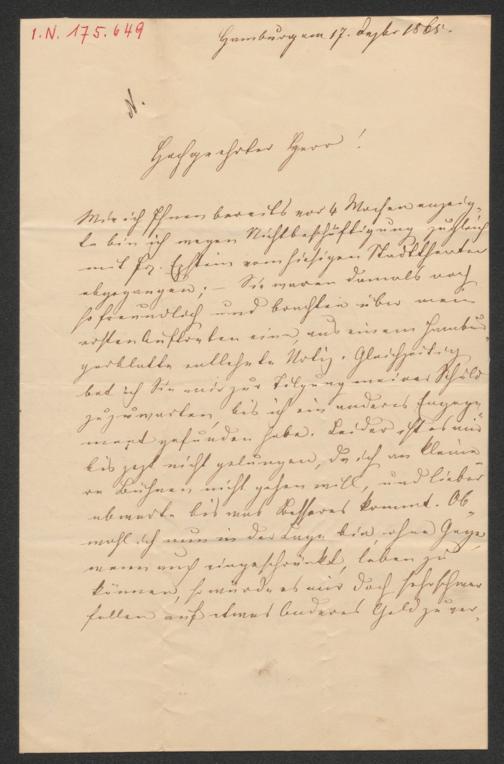 I.N. 175.649
Hamburg am 17. Dezbr 1865.
N.
Hochgeehrter Herr!
Wie ich Ihnen bereits vor 4 Wochen anzeig-
te bin ich wegen Nichtbeschäftigung zugleich
mit Fr. Epstein vom hiesigen Stadttheater
abgegangen; – Sie waren damals noch
so freundlich und brachten über mein
erstes Auftreten eine, aus einem Hambur-
gerblatte entlehnte Notiz. Gleichzeitig
bat ich Sie mir zur Tilgung meiner Schuld
zuzuwarten, bis ich ein anderes Engage-
ment gefunden habe. Leider ist es mir
bis jezt nicht gelungen, da ich an kleine-
re Bühnen nicht gehen will, und lieber
abwarte bis was Besseres kommt. Ob-
wohl ich nun in der Lage bin ohne Gage
wenn auch eingeschränkt, leben zu
können, so würde es mir doch sehr schwer
fallen auf etwas Anderes Geld zu ver-